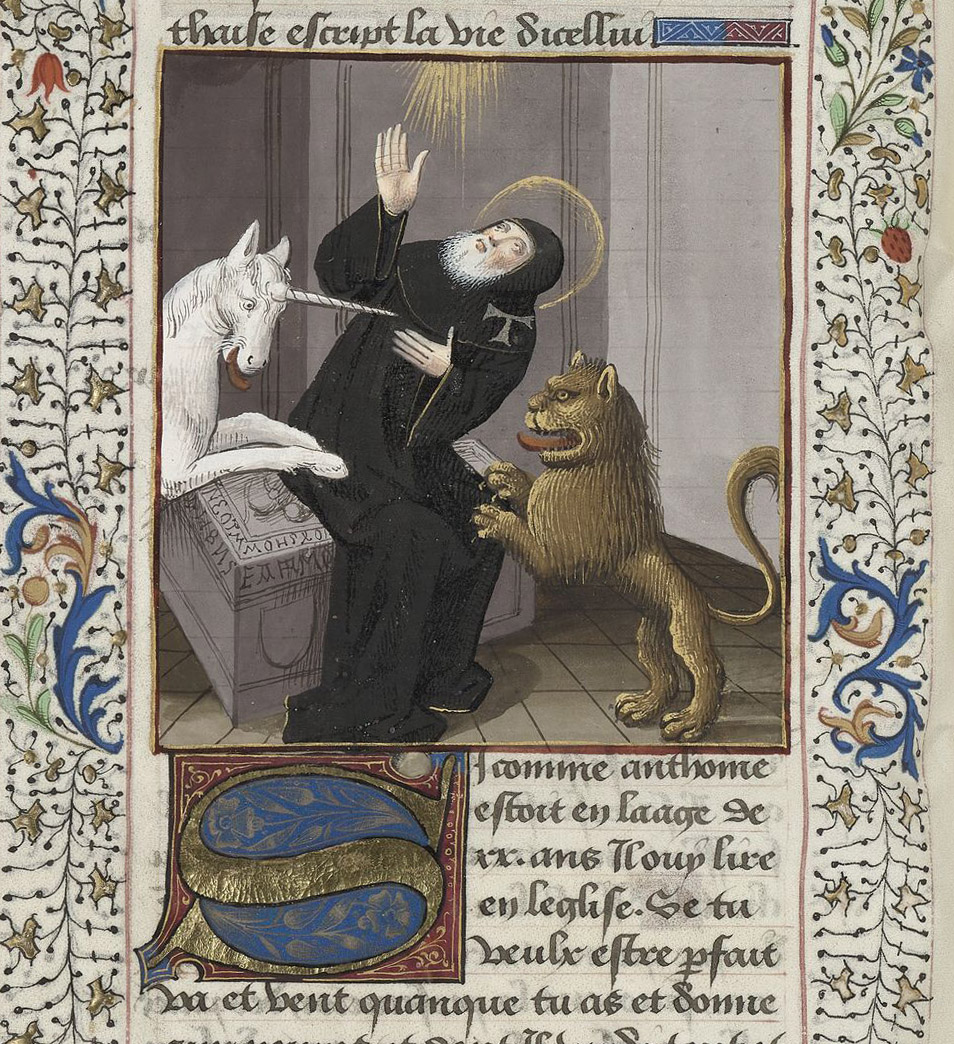 thaise escript la vie dicellui
SI comme anthoine
estoit en laage de
xx. ans Il ouy lire
en leglise. Se tu
veulx estre pfait
va et vent quanque tu as et donne